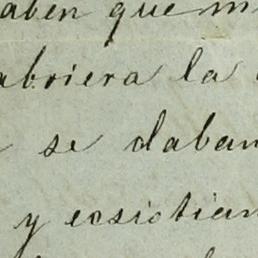 saben que
abriera la
se daban
y ecsistian